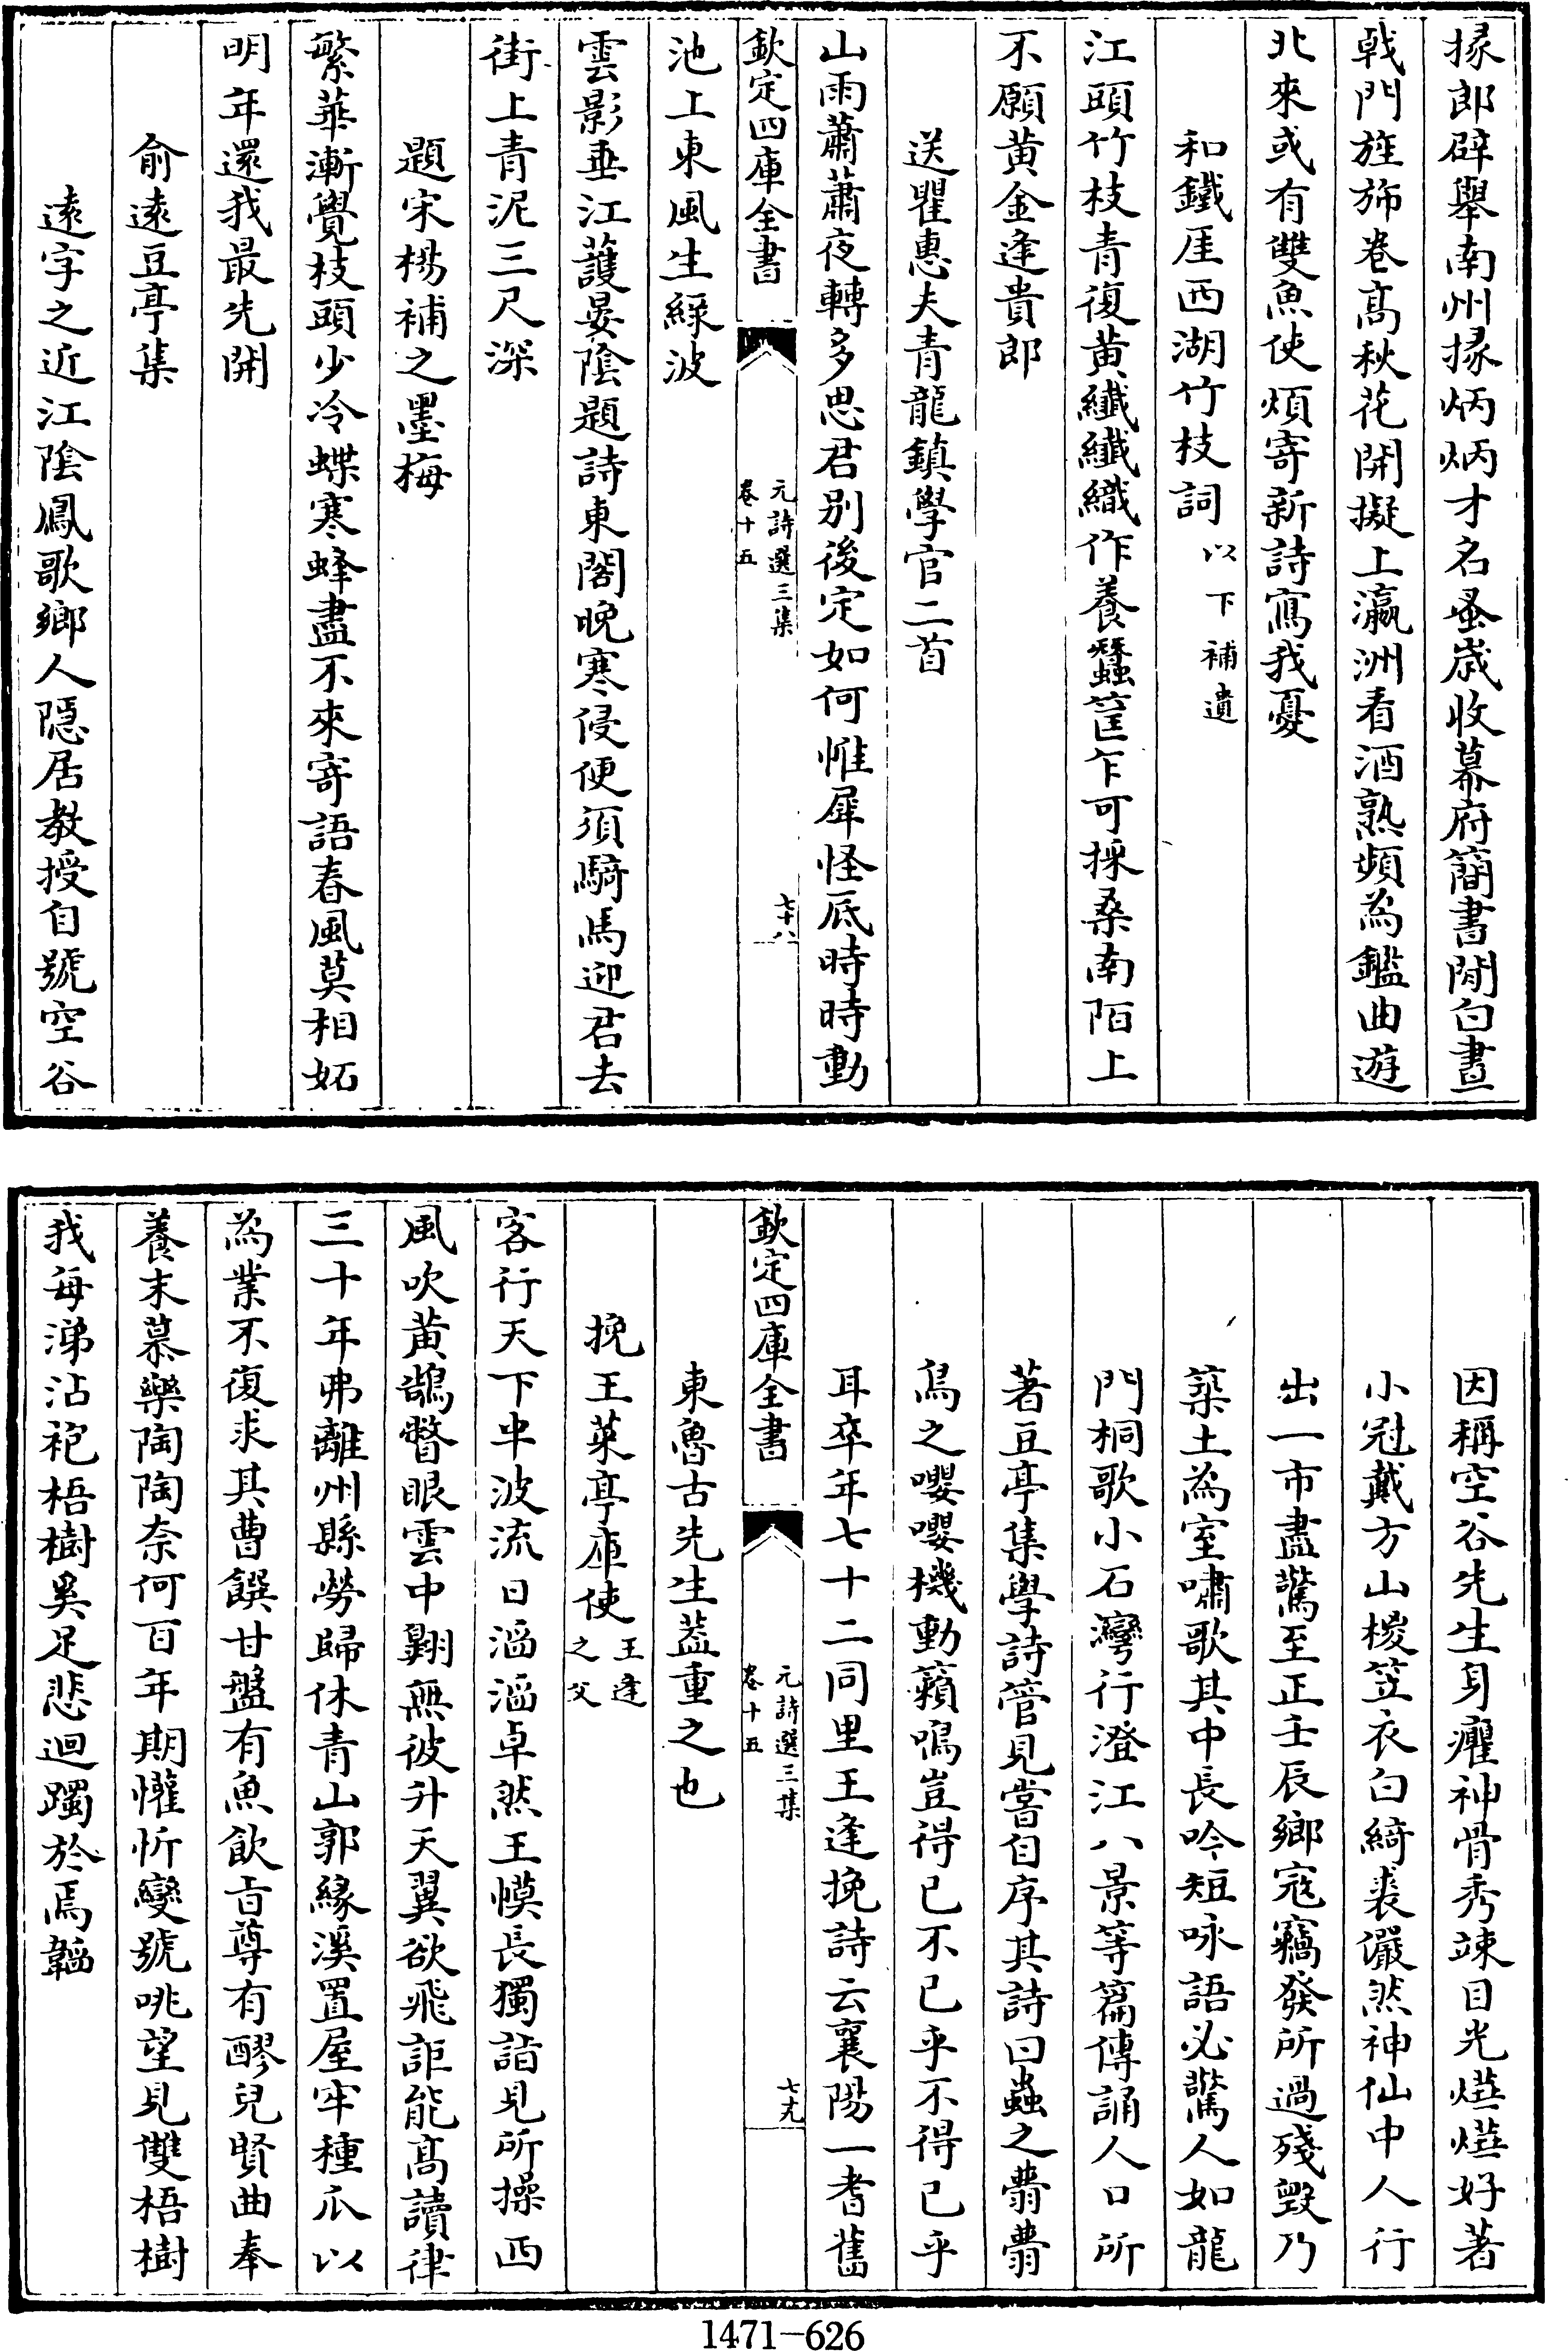 掾郎辟舉南州掾炳炳才名蚤歳收幕府簡書閒白晝
戟門旌斾巻髙秋花開擬上瀛洲看酒熟頻為鑑曲遊
北來或有雙魚使煩寄新詩寫我憂
和鐵厓西湖竹枝詞以下補遺
江頭竹枝青復黄纎纎織作養蠶筐乍可採桑南陌上
不願黄金逢貴郎
送瞿惠夫青龍鎮學官二首
山雨蕭蕭夜轉多思君别後定如何惟犀怪底時時動
欽定四庫全書
元詩選三集
卷十五
七十八
池上東風生緑波
雲影垂江䕶晏陰題詩東閣晚寒侵便須騎馬迎君去
街上青泥三尺深
題宋楊補之墨梅
繁華漸覺枝頭少冷蝶寒蜂盡不來寄語春風莫相妬
明年還我最先開
俞逺豆亭集
逺字之近江陰鳳歌鄉人隠居教授自號空谷
因稱空谷先生身癯神骨秀竦目光爗爗好著
小冠戴方山椶笠衣白綺裘儼然神仙中人行
出一市盡驚至正壬辰鄉寇竊發所過殘毁乃
築土為室嘯歌其中長吟短咏語必驚人如龍
門桐歌小石灣行澄江八景等篇傳誦人口所
著豆亭集學詩管見嘗自序其詩曰蟲之薨薨
鳥之嚶嚶機動籟鳴豈得已不已乎不得已乎
耳卒年七十二同里王逢挽詩云襄陽一耆舊
欽定四庫全書
元詩選三集
卷十五
七十九
東魯古先生葢重之也
挽王菜亭庫使王逢之父
客行天下半波流日滔滔卓然王幙長獨詣見所操西
風吹黄鵠瞥眼雲中翺無彼升天翼欲飛詎能髙讀律
三十年弗離州縣勞歸休青山郭緣溪置屋牢種瓜以
為業不復求其曹饌甘盤有魚飲㫖尊有醪兒賢曲奉
養末慕樂陶陶奈何百年期懽忻變號咷望見雙梧樹
我每涕沾袍梧樹奚足悲迴躅於焉韜
1471-626